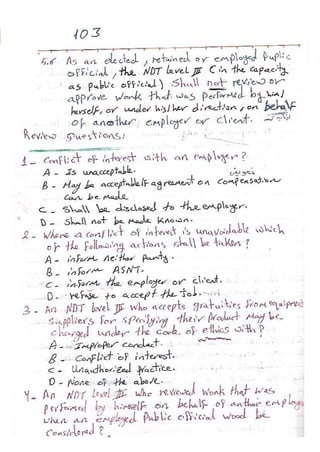 103
5.6 As an elected, retained or employed Puplic
official, the NDT level III (in the capacity
as public official) Shall not review or
approve work that was performed by him/
herself, or under his/her direction, on behalf
of another employer or client.
Review questions:
1- Conflict of interest with an employer?
A - Is unacceptable.
B - May be acceptable if agreement on compensation
can be made
C - Shall be disclosed to the employer.
D - Shall not be made known.
2- Where a conflict of interest is unavoidable which
of the following actions shall be taken?
A - inform neither party.
B - inform ASNT.
C - inform the employer or client.
D - refuse to accept the Job.
3 - An NDT level III who accepts gratuities from equipment
suppliers for specifying their product may be
charged under the Code of ethics with?
A - Improper conduct.
B - Conflict of interest.
C - Unauthorized practice.
D - None of the above.
4- An NDT level III who reviewed work that was
performed by himself on behalf of anthor employer
when an employed Public official wood be
Considered?